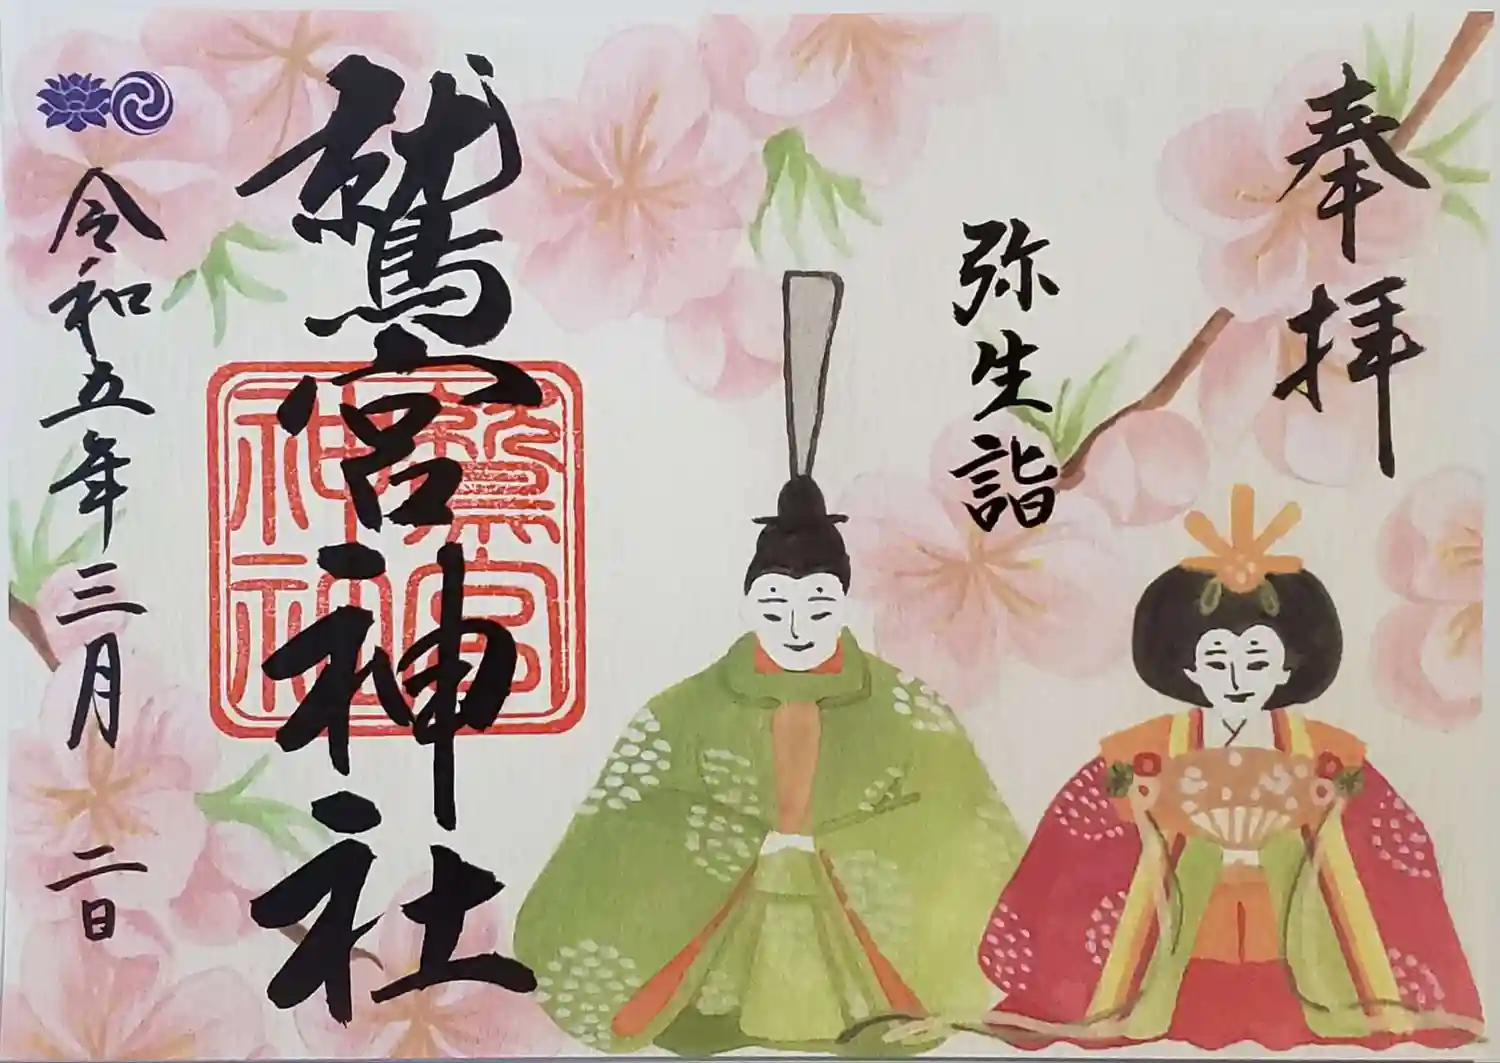 奉拝
弥生詣
鷲宮神社
鷲宮
神社
令和五年三月二日